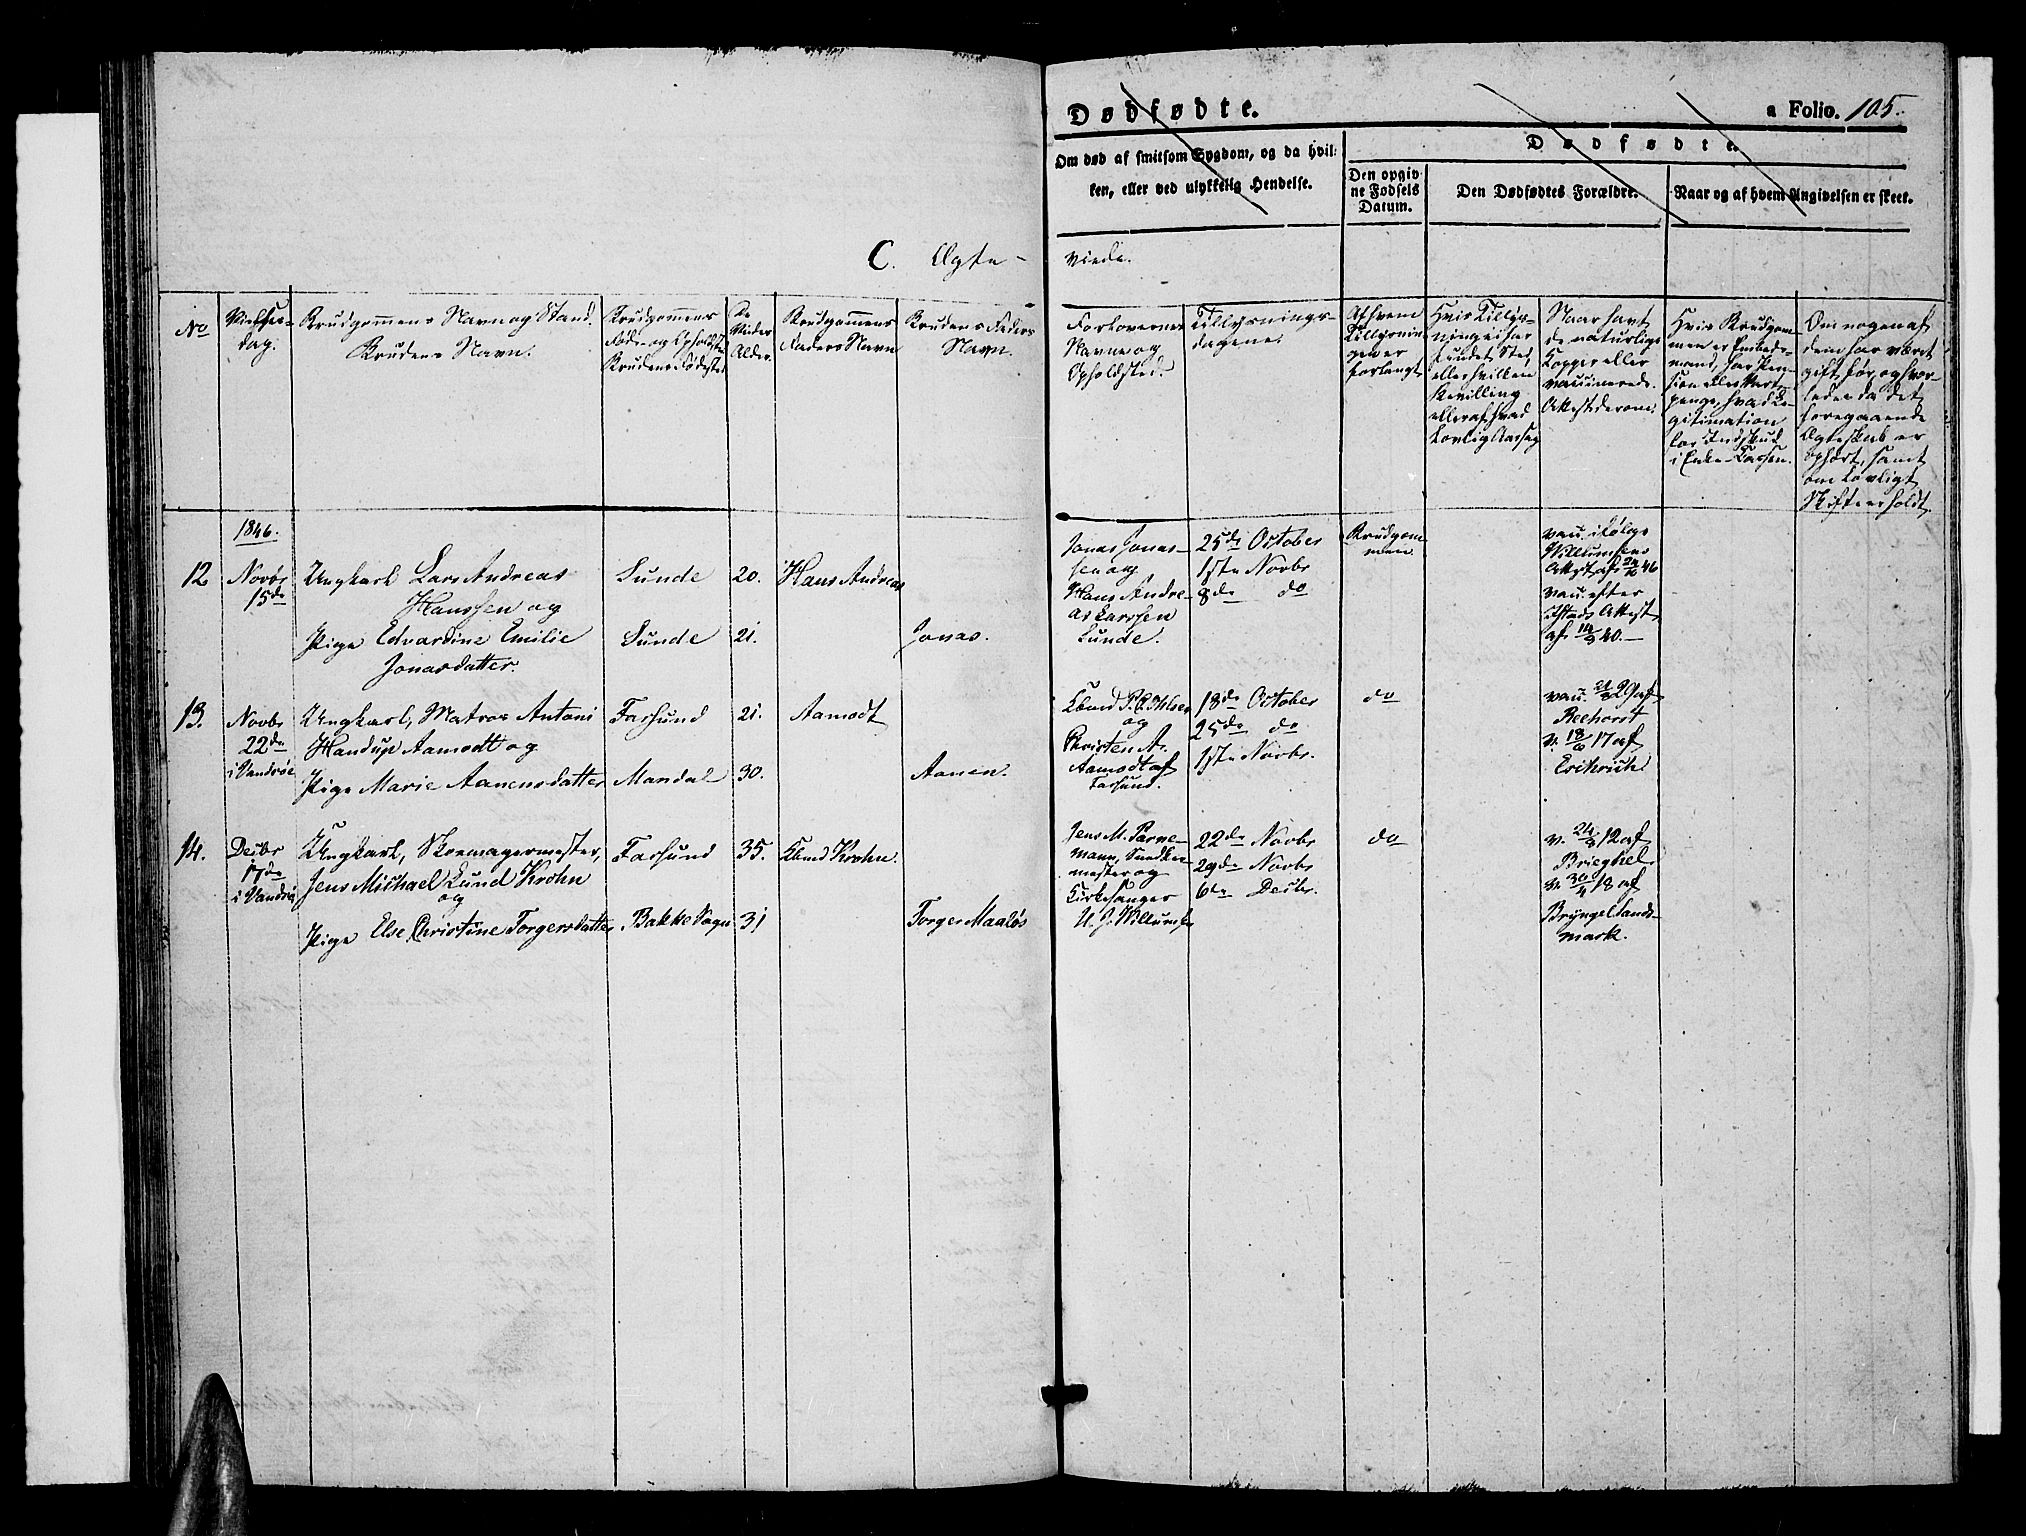 Dødfødte.
a Folio. 105.
Om død af smitsom Sygdom, og da hvil-
ken, eller ved ulykkelig Hendelse.
Dødfødte.
Den opgiv-
ne Fødsels
Datum.
Den Dødfødtes Forældre.
Naar og af hvem Angivelsen er skeet.
C. Ægte-
viede.
No
Vielses-
dag.
Brudgommens Navn og Stand.
Brudens Navn.
Brudgommens
Føde- og Opholdst.
Brudens Fødested
De
Vieder
Alder.
Brudgommens
Faders Navn
Brudens Faders
Navn.
Forlovernes
Navne og
Opholdsted.
Tillysnings-
dagene.
Af hvem
Tillysnin-
gen er
forlangt
Hvis Tillys-
ning ei har
fundet Sted,
eller hvilken
Bevilling
eller af hvad
lovlig Aarsag
Naar havt
de naturlige
Kopper eller
vaccinerede.
Attest derom.
Hvis Brudgom-
men er Embeds-
mand, har Pen-
sion eller Vart-
penge, hvad Le-
gitimation
for Indskud
i Enke-Cassen.
Om nogen af
dem har været
gift før, og hvor-
ledes da det
foregaaende
Ægteskab er
ophørt, samt
om lovligt
Skifte er holdt.
1846.
12
Novbr
15de
Ungkarl Lars Andreas
Hanssen og
Pige Edvardine Emilie
Jonasdatter.
Lunde
Lunde
20.
21.
Hans Andreas
Jonas.
Jonas Jonas-
sen og
Hans Andre-
as Larssen
Lunde.
25de October
1ste Novbr
8de do
Brudgom-
men.
vac. i følge
Willumsens
Attest af 24/10 46
vac. efter
Attest
af 14/9 40.
13.
Novbr
22de
i Vandsøe
Ungkarl, Matros Antoni
Handup Aamodt og
Pige Marie Aanensdatter
Farsund
Mandal
21.
30.
Aamodt
Aanen.
og
Christen A.
Aamodt af
Farsund.
18de October
25de do
1ste Novbr.
do
vac. 29 af
Reehorst
v. 18/6 17 af
14.
Decbr
17de
i Vandsøe
Ungkarl, Skomagermester,
Jens Michael Lund Krohn
og
Pige Else Christine Torgersdatter
Farsund
Bakke Sogn
35.
31
Krohn.
Torger Maaløs
Jens M.
mester og
Kirkesanger
22de Novbr
29de Novbr
6te Decbr.
do
v. 24/8 12 af
Brieghel.
v. 30/4 18 af
Bryngel Sands-
mark.